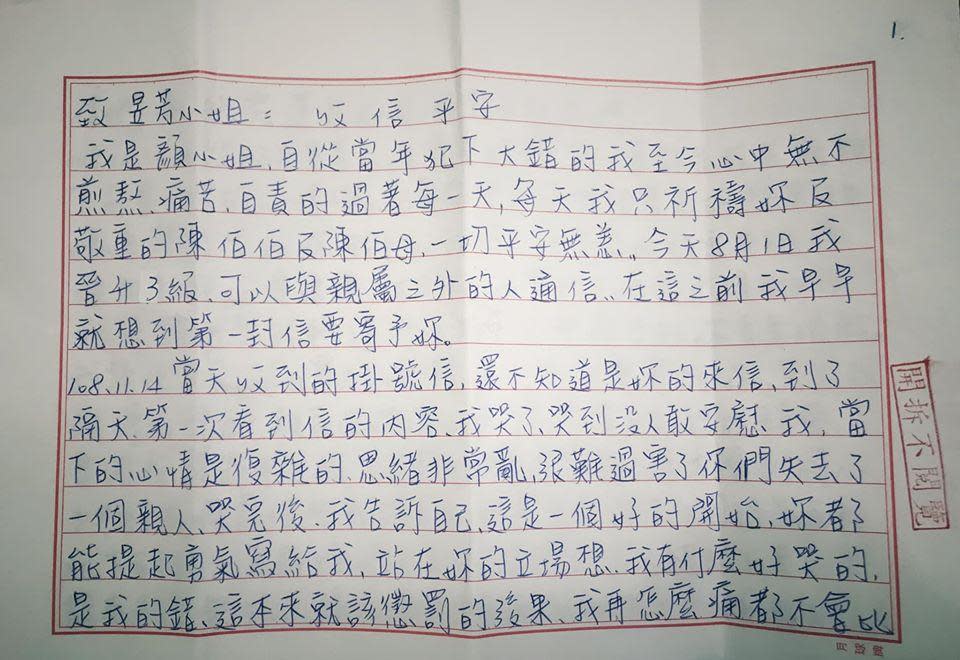 1.
致昱芳小姐：收信平安
我是顏小姐、自從當年犯下大錯的我至今心中無不
煎熬、痛苦、自責的過著每一天，每天我只祈禱妳及
敬重的陳伯伯及陳伯母、一切平安無恙。今天8月1日我
晉升3級、可以與親屬之外的人通信、在這之前我早早
就想到第一封信要寄予妳。
108.11.14當天收到的掛號信，還不知道是妳的來信、到了
隔天、第一次看到信的內容、我哭了、哭到沒人敢安慰我，當
下的心情是復雜的、思緒非常亂、很難過害了你們失去了
一個親人、哭完後、我告訴自己、這是一個好的開始、妳都
能提起勇氣寫給我，站在妳的立場想、我有什麼好哭的，
是我的錯、這本來就該懲罰的後果、我再怎麼痛都不會比
開拆不閱覽